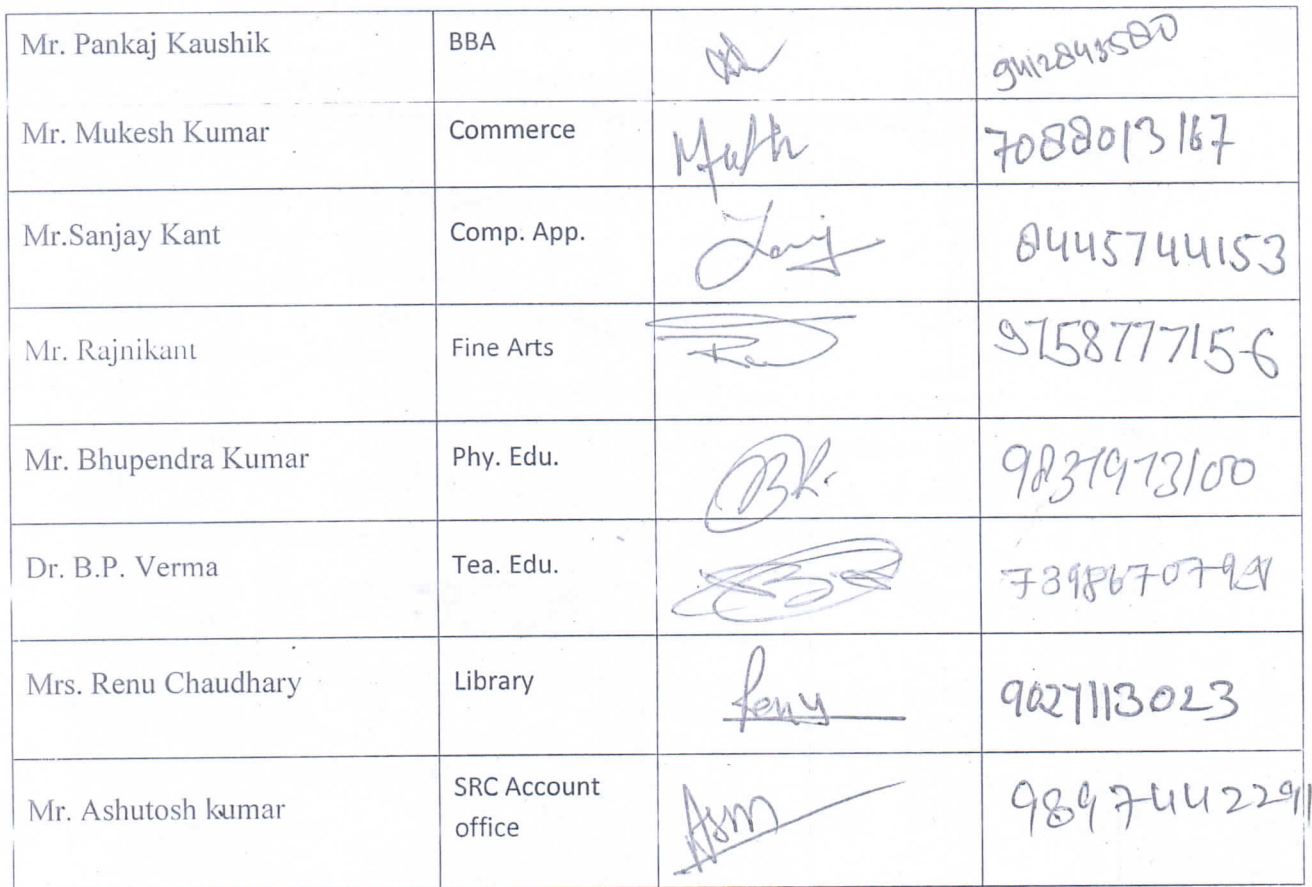 Mr. Pankaj Kaushik BBA 9412843580
Mr. Mukesh Kumar Commerce 7088013167
Mr.Sanjay Kant Comp. App. 8445744153
Mr. Rajnikant Fine Arts
Mr. Bhupendra Kumar Phy. Edu.
Dr. B.P. Verma Tea. Edu.
Mrs. Renu Chaudhary Library Renu 9027113023
Mr. Ashutosh kumar SRC Account
office 9897442291